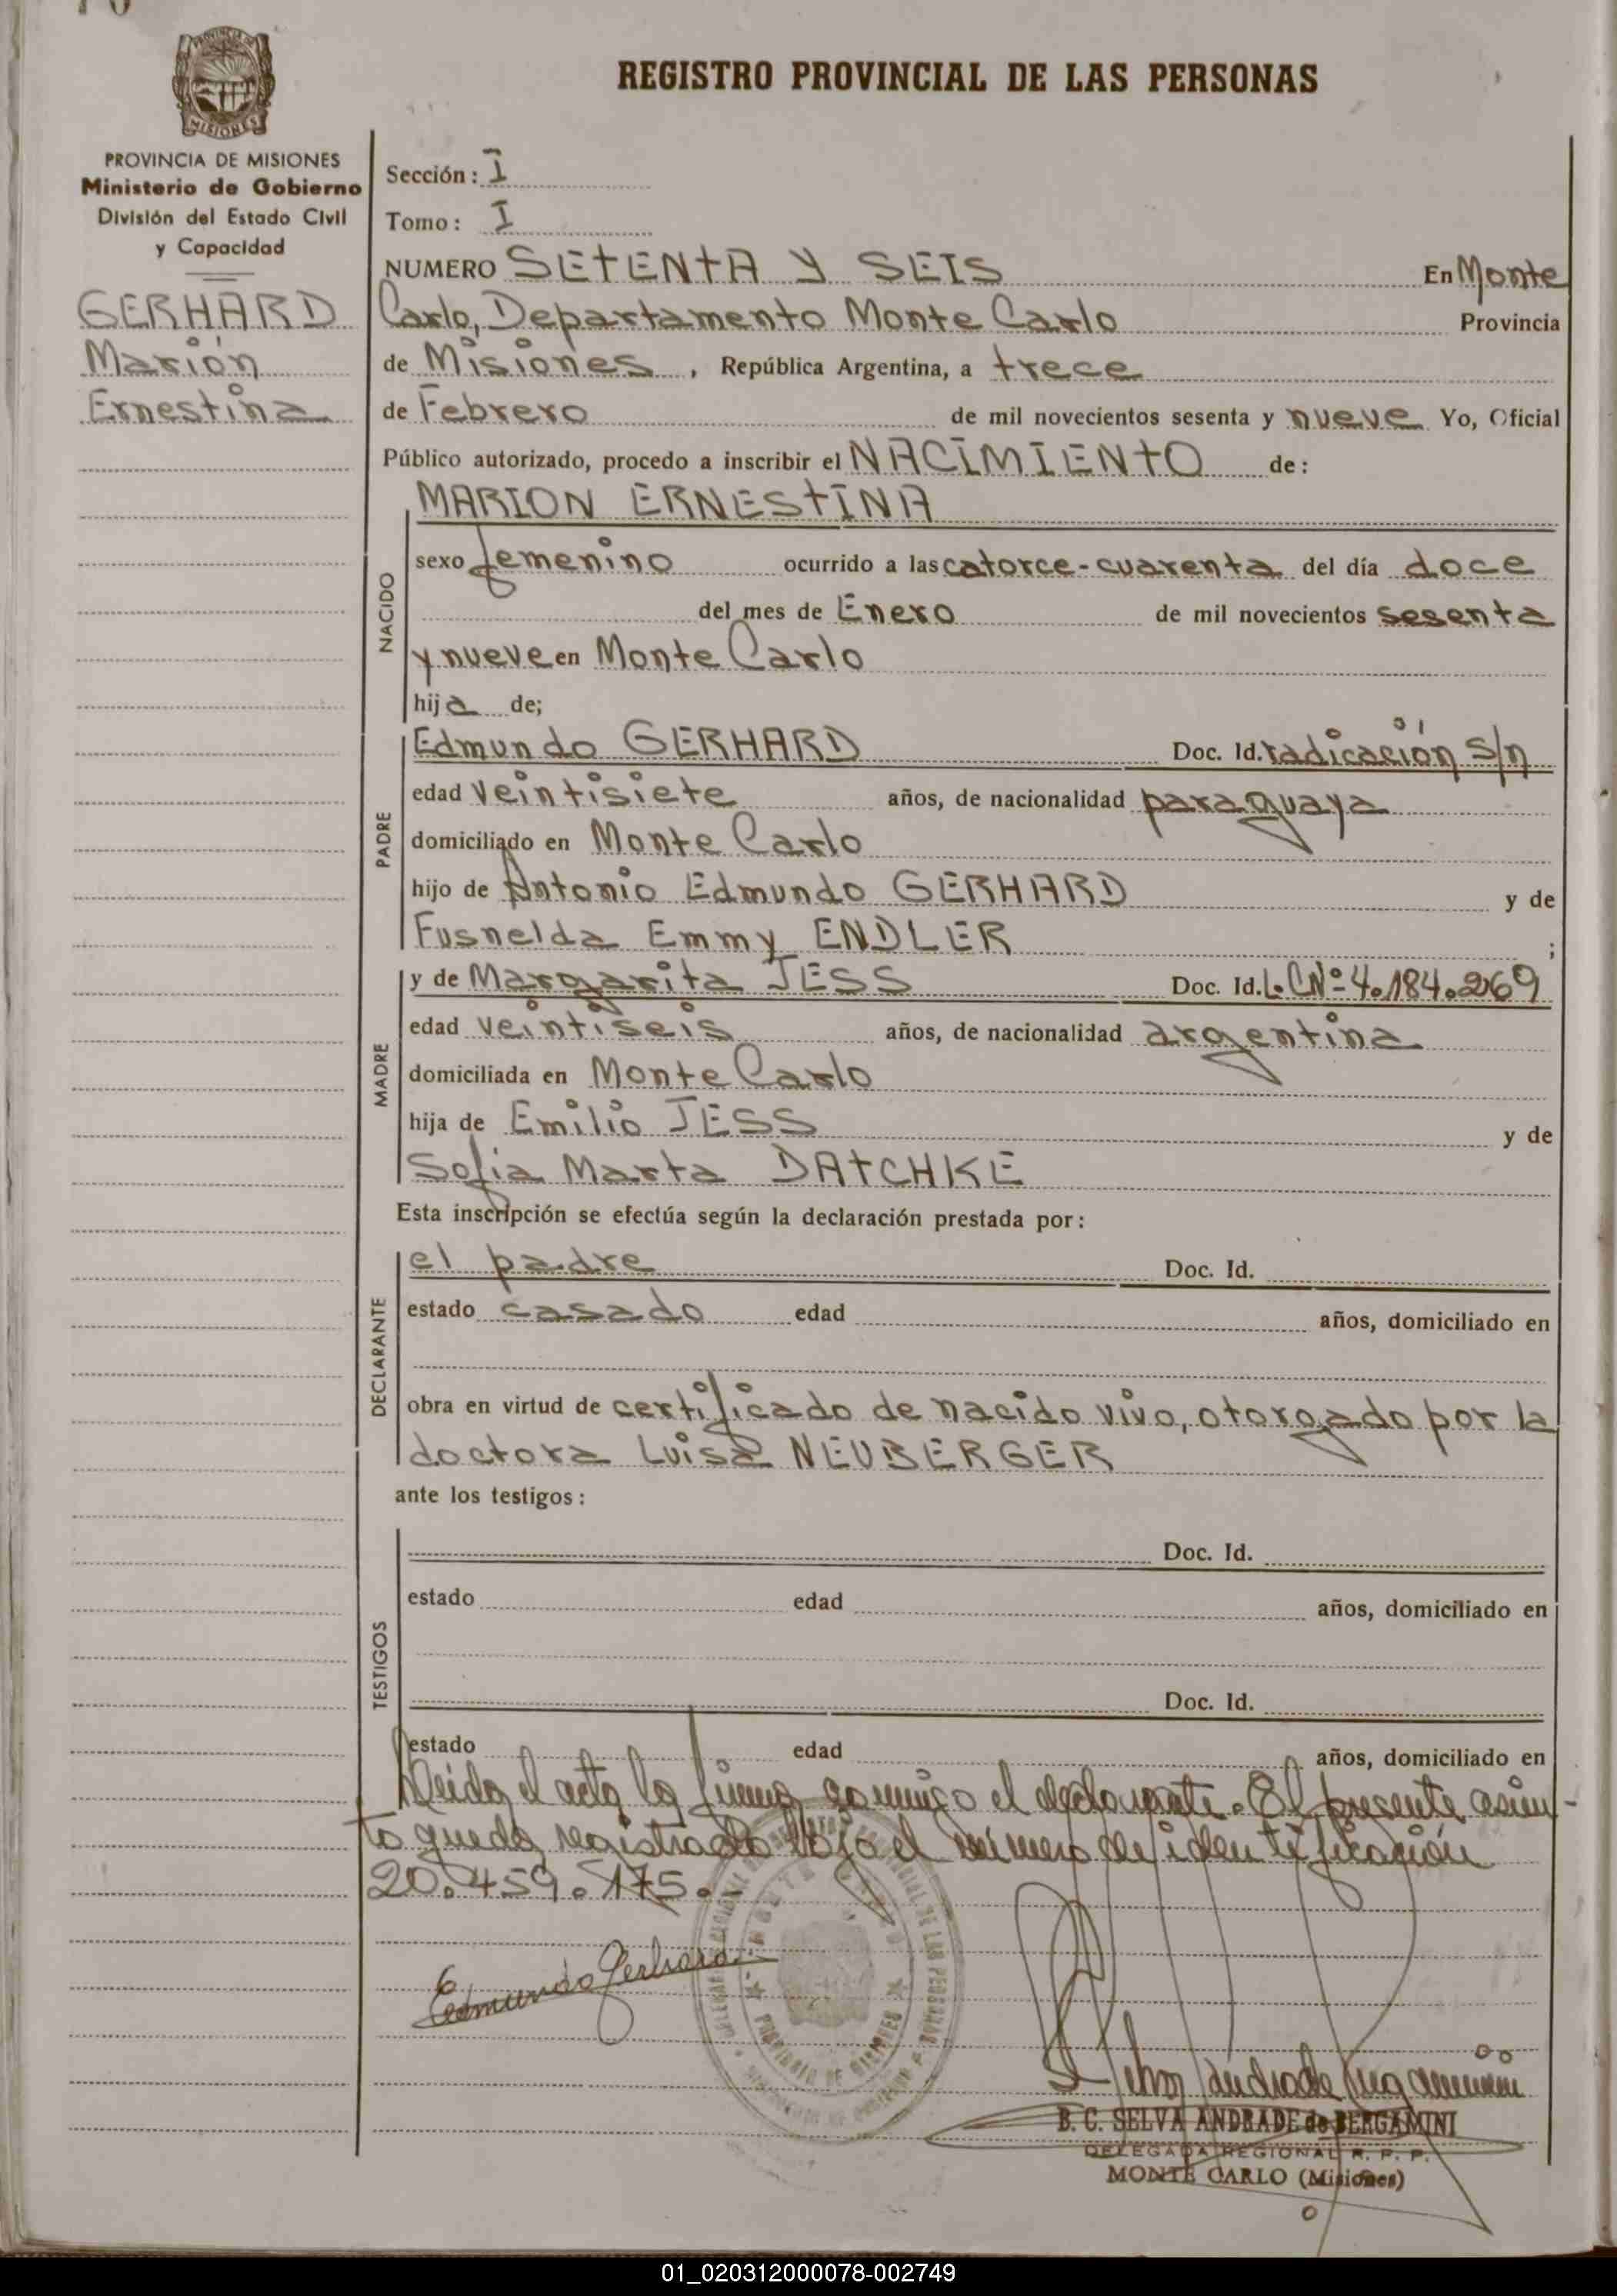 REGISTRO PROVINCIAL DE LAS PERSONAS
MISIONES
PROVINCIA DE MISIONES
Ministerio de Gobierno
División del Estado Civil
y Capacidad
GERHARD
Marión
Ernestina
Sección: I
Tomo: I
NUMERO SETENTA Y SEIS En Monte
Carlo, Departamento Monte Carlo Provincia
de Misiones, República Argentina, a trece
de Febrero de mil novecientos sesenta y nueve Yo, Oficial
Público autorizado, procedo a inscribir el NACIMIENTO de:
MARION ERNESTINA
NACIDO
sexo femenino ocurrido a las catorce-cuarenta del día doce
del mes de Enero de mil novecientos sesenta
y nueve en Monte Carlo
hija de;
PADRE
Edmundo GERHARD Doc. Id. radicación s/n
edad veintisiete años, de nacionalidad paraguaya
domiciliado en Monte Carlo
hijo de Antonio Edmundo GERHARD y de
Fusnelda Emmy ENDLER ;
MADRE
y de Margarita JESS Doc. Id. L.C Nº 4.184.269
edad veintiseis años, de nacionalidad argentina
domiciliada en Monte Carlo
hija de Emilio JESS y de
Sofia Marta DATCHKE
Esta inscripción se efectúa según la declaración prestada por:
DECLARANTE
el padre Doc. Id.
estado casado edad años, domiciliado en
obra en virtud de certificado de nacido vivo, otorgado por la
doctora Luisa NEUBERGER
ante los testigos:
TESTIGOS
Doc. Id.
estado edad años, domiciliado en
Doc. Id.
estado edad años, domiciliado en
Leida el acta la firma conmigo el declarante. El presente asien-
to queda registrado bajo el número de identificación
20.459.175.-
Edmundo Gerhard
PROVINCIA DE MISIONES
B. C. SELVA ANDRADE de BERGAMINI
DELEGADA REGIONAL R. P. P.
MONTE CARLO (Misiones)
01_020312000078-002749